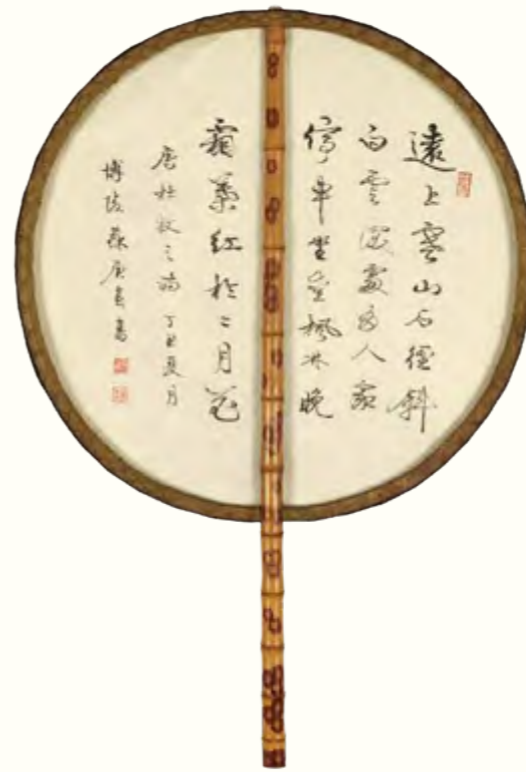 遠上寒山石徑斜
白雲深處有人家
停車坐愛楓林晚
霜葉紅於二月花
唐杜牧之詩 丁丑夏月
博陵蘇庚春書